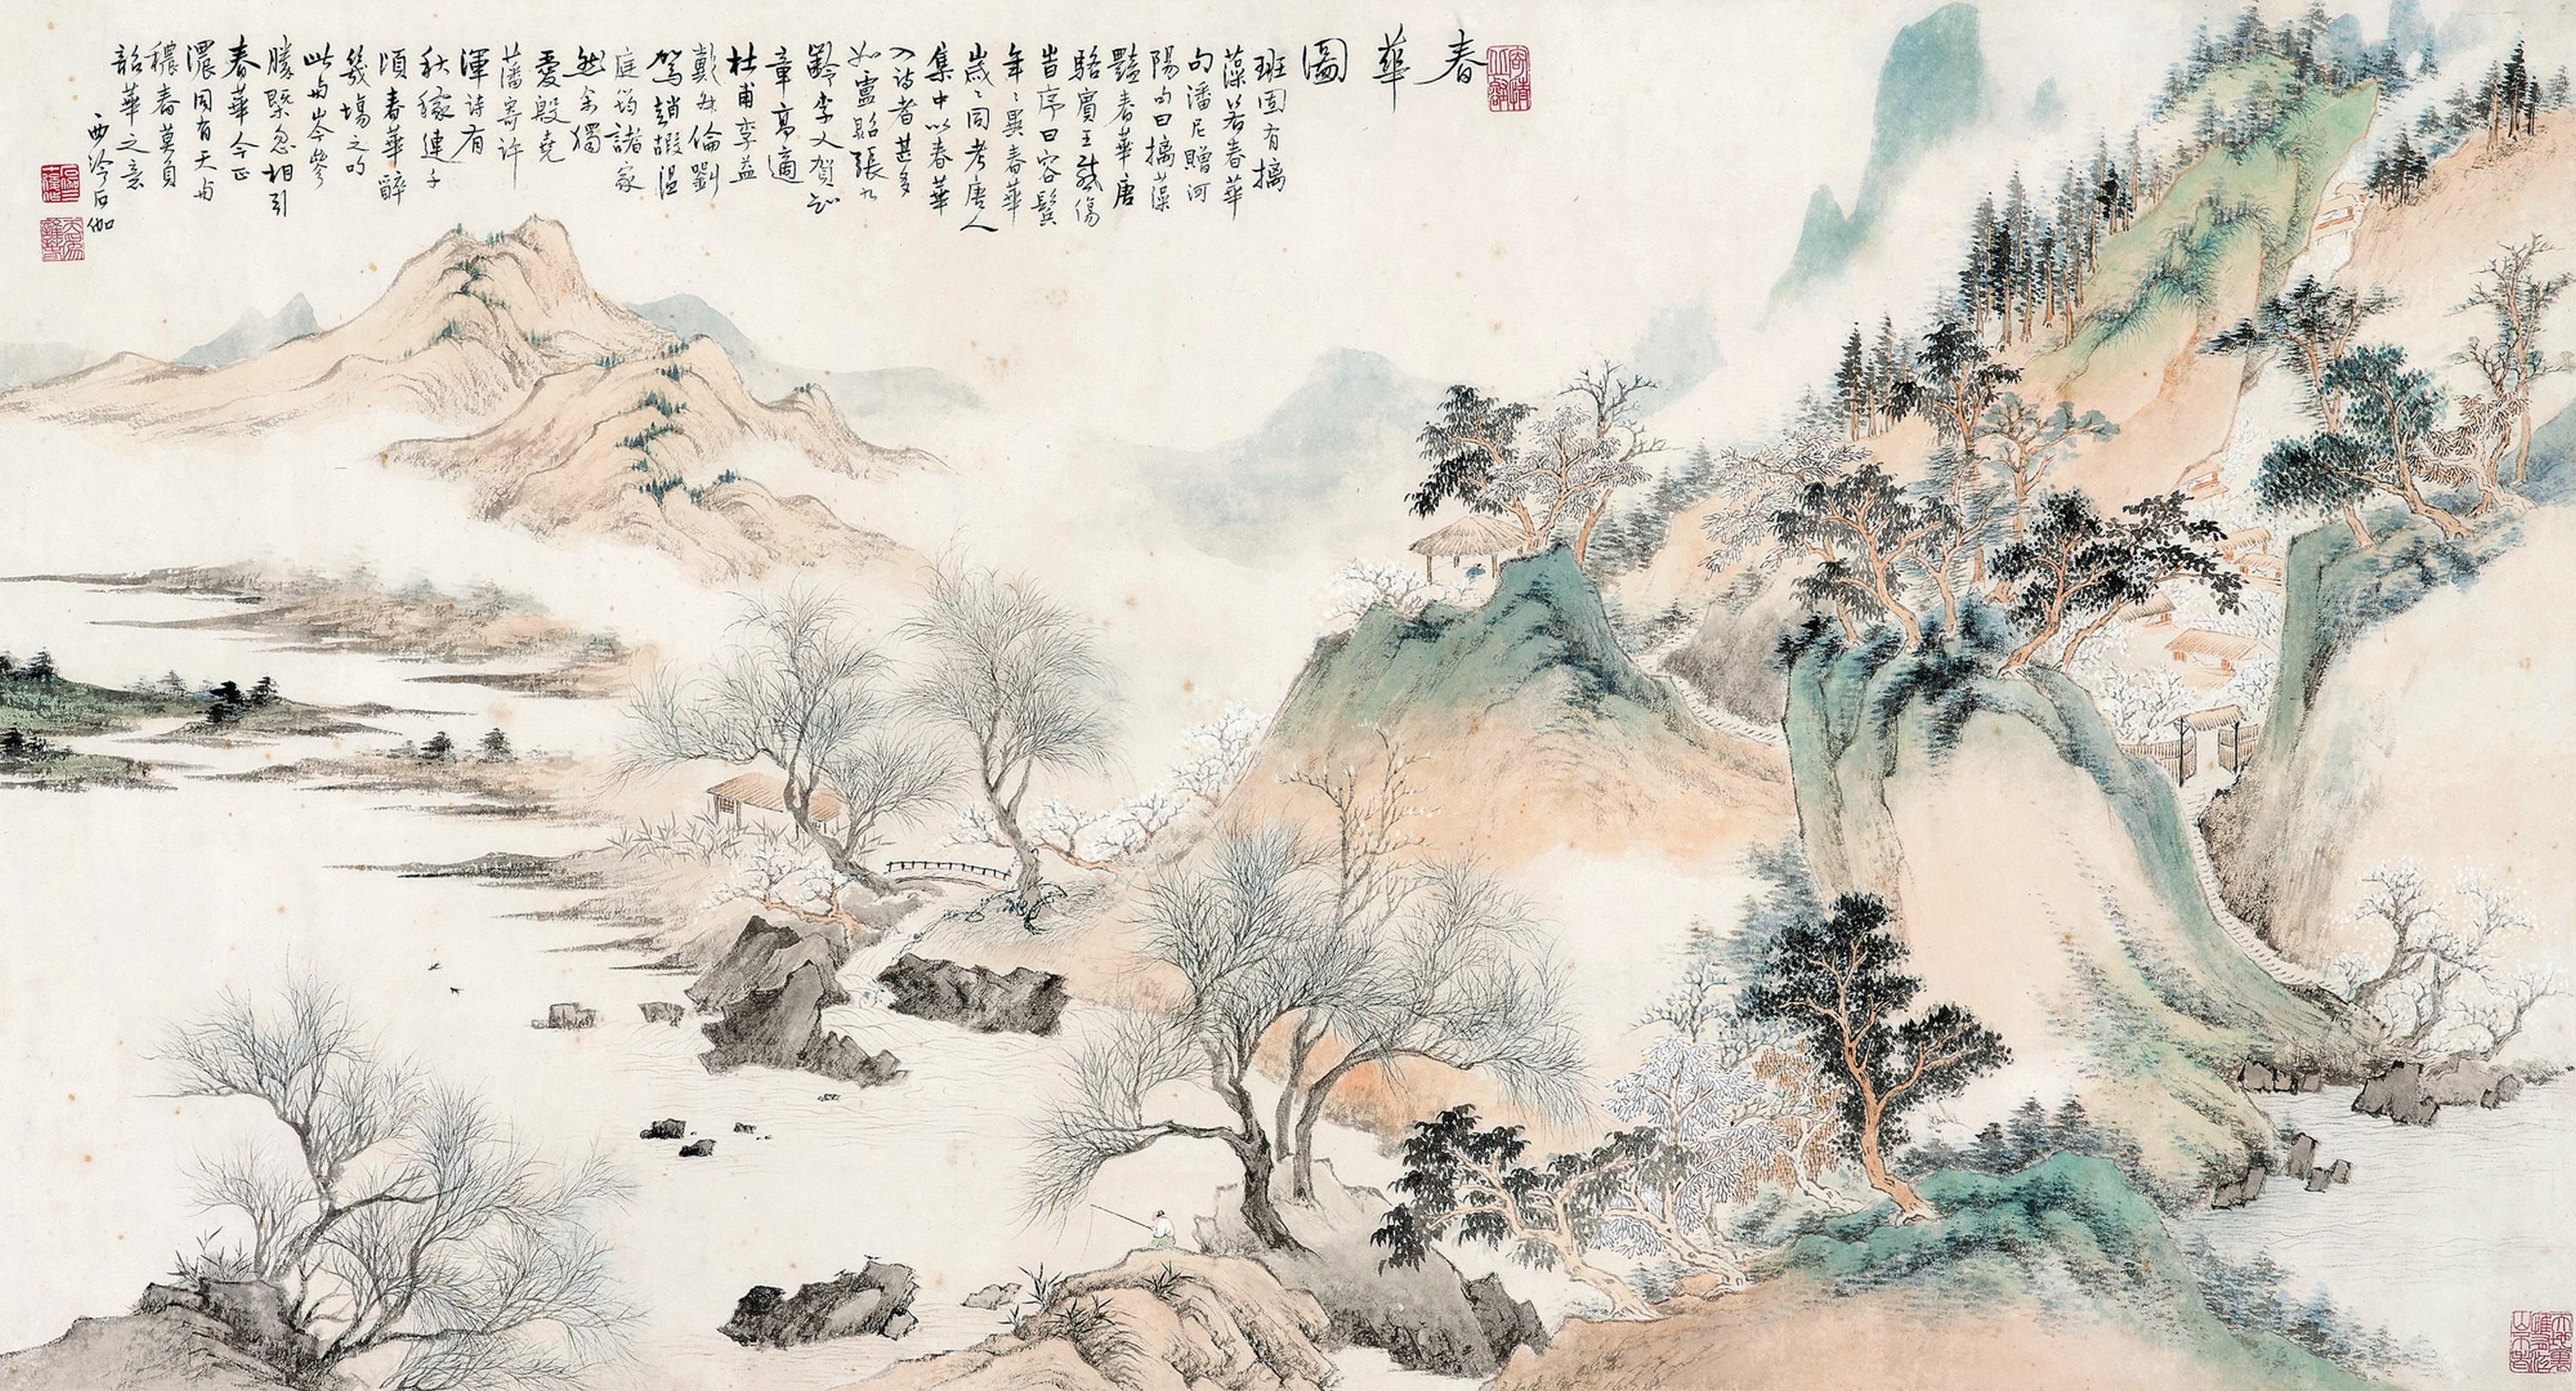 春華圖
班固有摛
藻若春華
句潘尼贈河
陽句曰摛藻
豔春華唐
駱賓王感傷
皆序曰容鬢
年〻異春華
歲〻同考唐人
集中以春華
入詩者甚多
如盧照張九
齡李乂賀知
章高適
杜甫李益
戴叔倫劉
駕趙嘏溫
庭筠諸家
然余獨
愛殷堯
藩寄許
渾詩有
秋稼連千
頃春華醉
幾場之句
此与岑參
勝槩忽相引
春華今正
濃同有天与
穠春莫負
韶華之意
西泠石伽